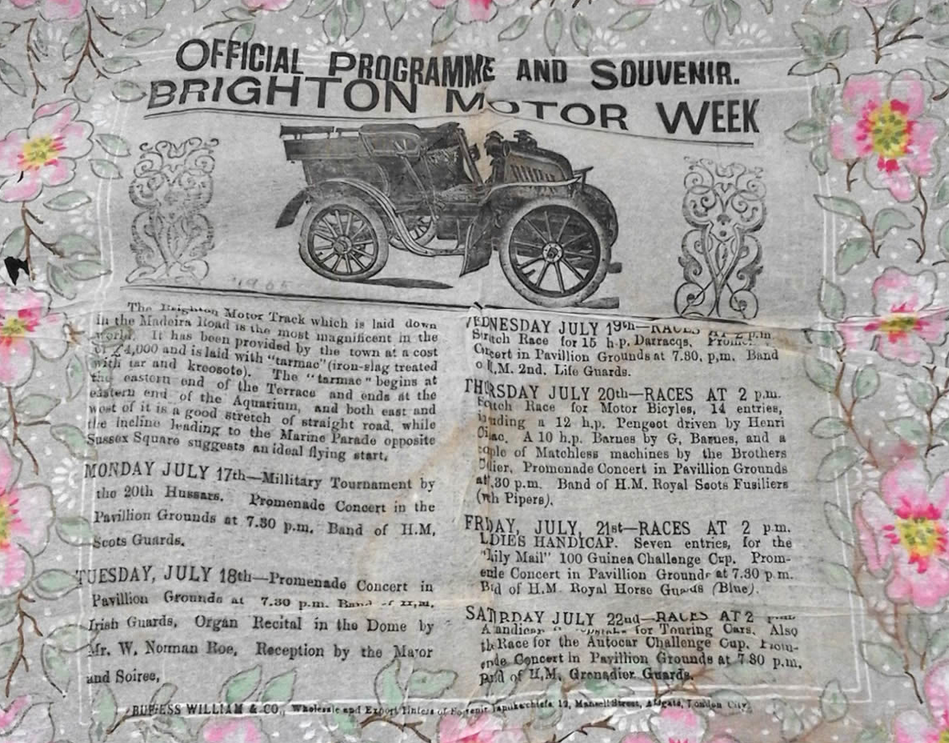 OFFICIAL PROGRAMME AND SOUVENIR.
BRIGHTON MOTOR WEEK
1905
The Brighton Motor Track which is laid down
in the Madeira Road is the most magnificent in the
world. It has been provided by the town at a cost
of £4,000 and is laid with "tarmac" (iron-slag treated
with tar and kreosote). The "tarmac" begins at
the eastern end of the Terrace and ends at the
eastern end of the Aquarium, and both east and
west of it is a good stretch of straight road, while
the incline leading to the Marine Parade opposite
Sussex Square suggests an ideal flying start.
MONDAY JULY 17th—Millitary Tournament by
the 20th Hussars. Promenade Concert in the
Pavillion Grounds at 7.30 p.m. Band of H.M,
Scots Guards.
TUESDAY, JULY 18th—Promenade Concert in
Pavillion Grounds at 7.30 p.m. Band of H.M.
Irish Guards, Organ Recital in the Dome by
Mr. W. Norman Roe, Reception by the Mayor
and Soiree,
EDNESDAY JULY 19th—RACES AT p.m
Race for 15 h.p. Darracqs.
Concert in Pavillion Grounds at 7.80, p,m. Band
o H.M. 2nd. Life Guards.
THURSDAY JULY 20th—RACES AT 2 p.m.
Race for Motor Bicyles, 14 entries,
a 12 h.p. Pengeot driven by Henri
A 10 h.p. Barnes by G. Barnes, and a
of Matchless machines by the Brothers
Promenade Concert in Pavillion Grounds
at .30 p.m. Band of H.M. Royal Scots Fusiliers
Pipers).
FRDAY, JULY, 21st—RACES AT 2 p.m.
LDIES HANDICAP. Seven entries, for the
Mail" 100 Guinea Challenge Cup. Prom-
Concert in Pavillion Grounds at 7.30 p.m.
H.M. Royal Horse Guards (Blue).
SATRDAY JULY 22nd—RACES AT 2
for Touring Cars. Also
Race for the Autocar Challenge Cup. Prom-
Concert in Pavillion Grounds at 7 80 p.m,
of H,M, Grenadier Guards.
BURGESS WILLIAM & CO, Wholesale and Export of 12, Mansell Street, Aldgate, London City